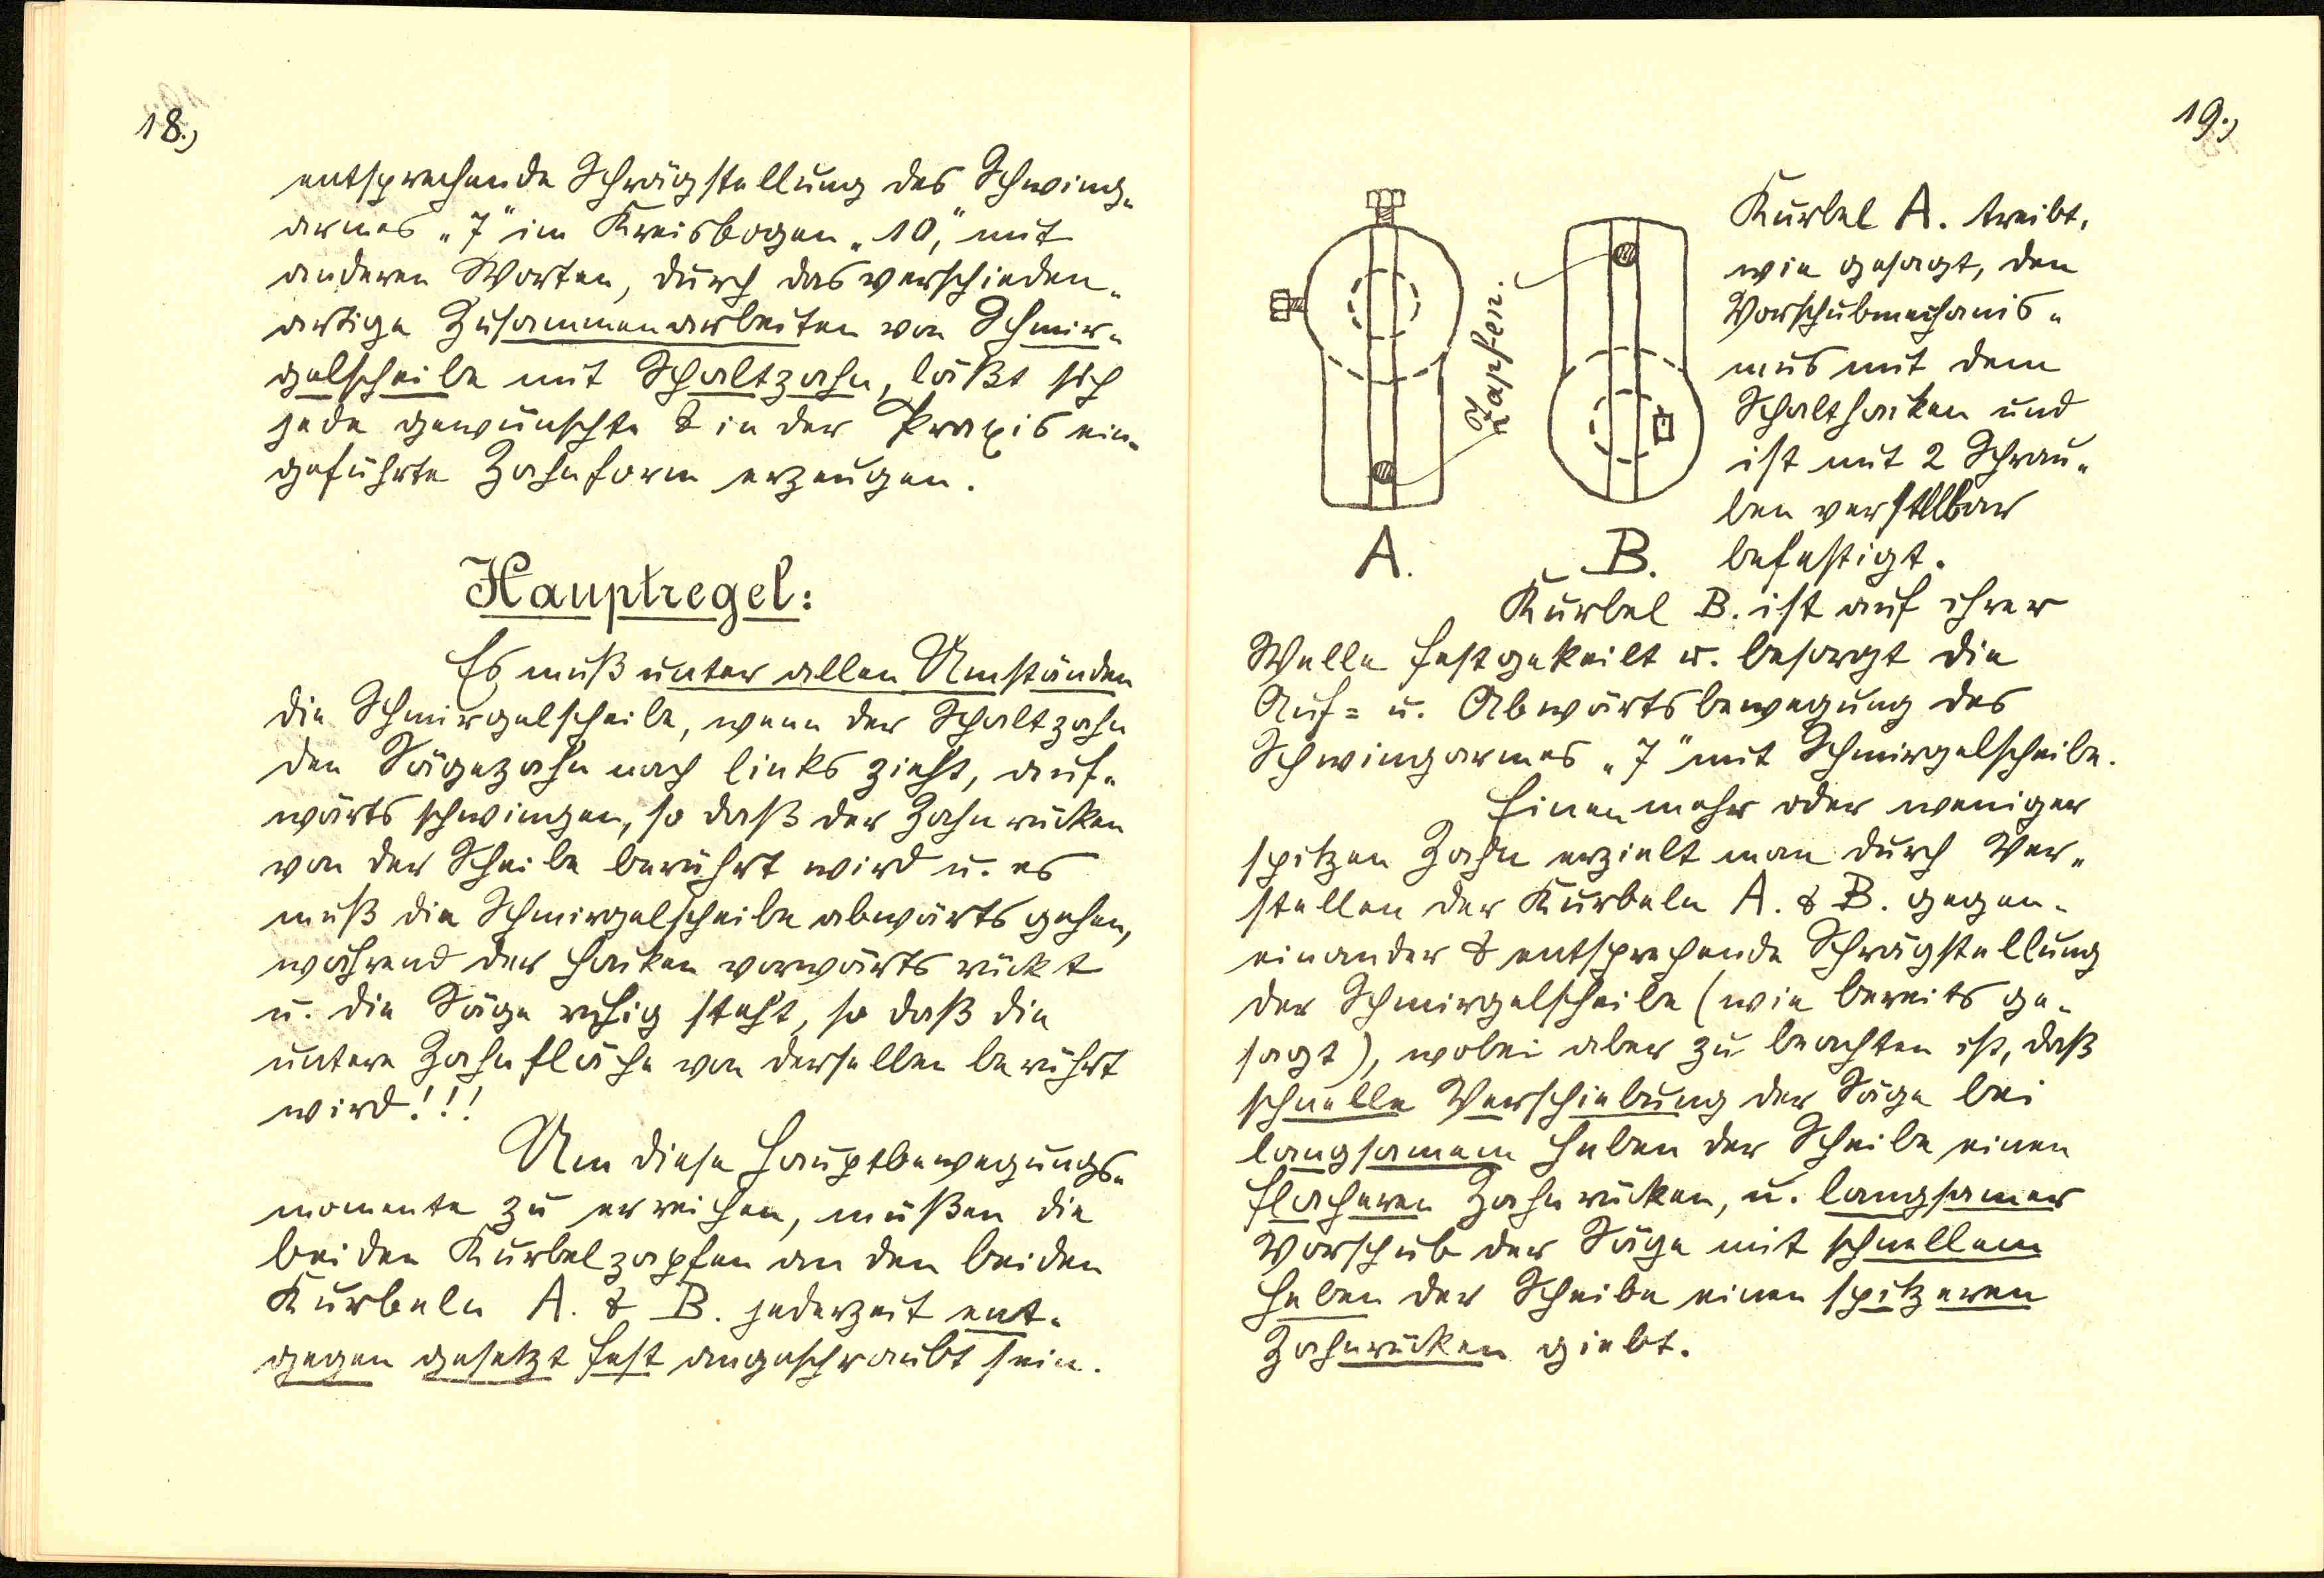 18.)
entsprechende Schrägstellung des Schwing-
armes „7" im Kreisbogen „10", mit
anderen Worten, durch das verschieden-
artige Zusammenarbeiten von Schmir-
gelscheibe mit Schaltzahn, läßt sich
jede gewünschte & in der Praxis ein-
geführte Zahnform erzeugen.
Hauptregel:
Es muß unter allen Umständen
die Schmirgelscheibe, wenn der Schaltzahn
den Sägezahn nach links zieht, auf-
wärts schwingen, so daß der Zahnrücken
von der Scheibe berührt wird u. es
muß die Schmirgelscheibe abwärts gehen,
während der Haken vorwärts rückt
u. die Säge ruhig steht, so daß die
untere Zahnfläche von derselben berührt
wird!!!
Um diese Hauptbewegungs-
momente zu erreichen, müßen die
beiden Kurbelzapfen an den beiden
Kurbeln A. & B. jederzeit ent-
gegen gesetzt fest angeschraubt sein.
19.)
Zapfen.
A.
B.
Kurbel A. treibt,
wie gesagt, den
Vorschubmechanis-
mus mit dem
Schalthaken und
ist mit 2 Schrau-
ben verstellbar
befestigt.
Kurbel B. ist auf ihrer
Welle festgekeilt u. besorgt die
Auf= u. Abwärtsbewegung des
Schwingarmes „7" mit Schmirgelscheibe.
Einen mehr oder weniger
spitzen Zahn erzielt man durch Ver-
stellen der Kurbeln A. & B. gegen-
einander & entsprechende Schrägstellung
der Schmirgelscheibe (wie bereits ge-
sagt), wobei aber zu beachten ist, daß
schnelle Verschiebung der Säge bei
langsamem Heben der Scheibe einen
flacheren Zahnrücken, u. langsamer
Vorschub der Säge mit schnellem
Heben der Scheibe einen spitzeren
Zahnrücken giebt.